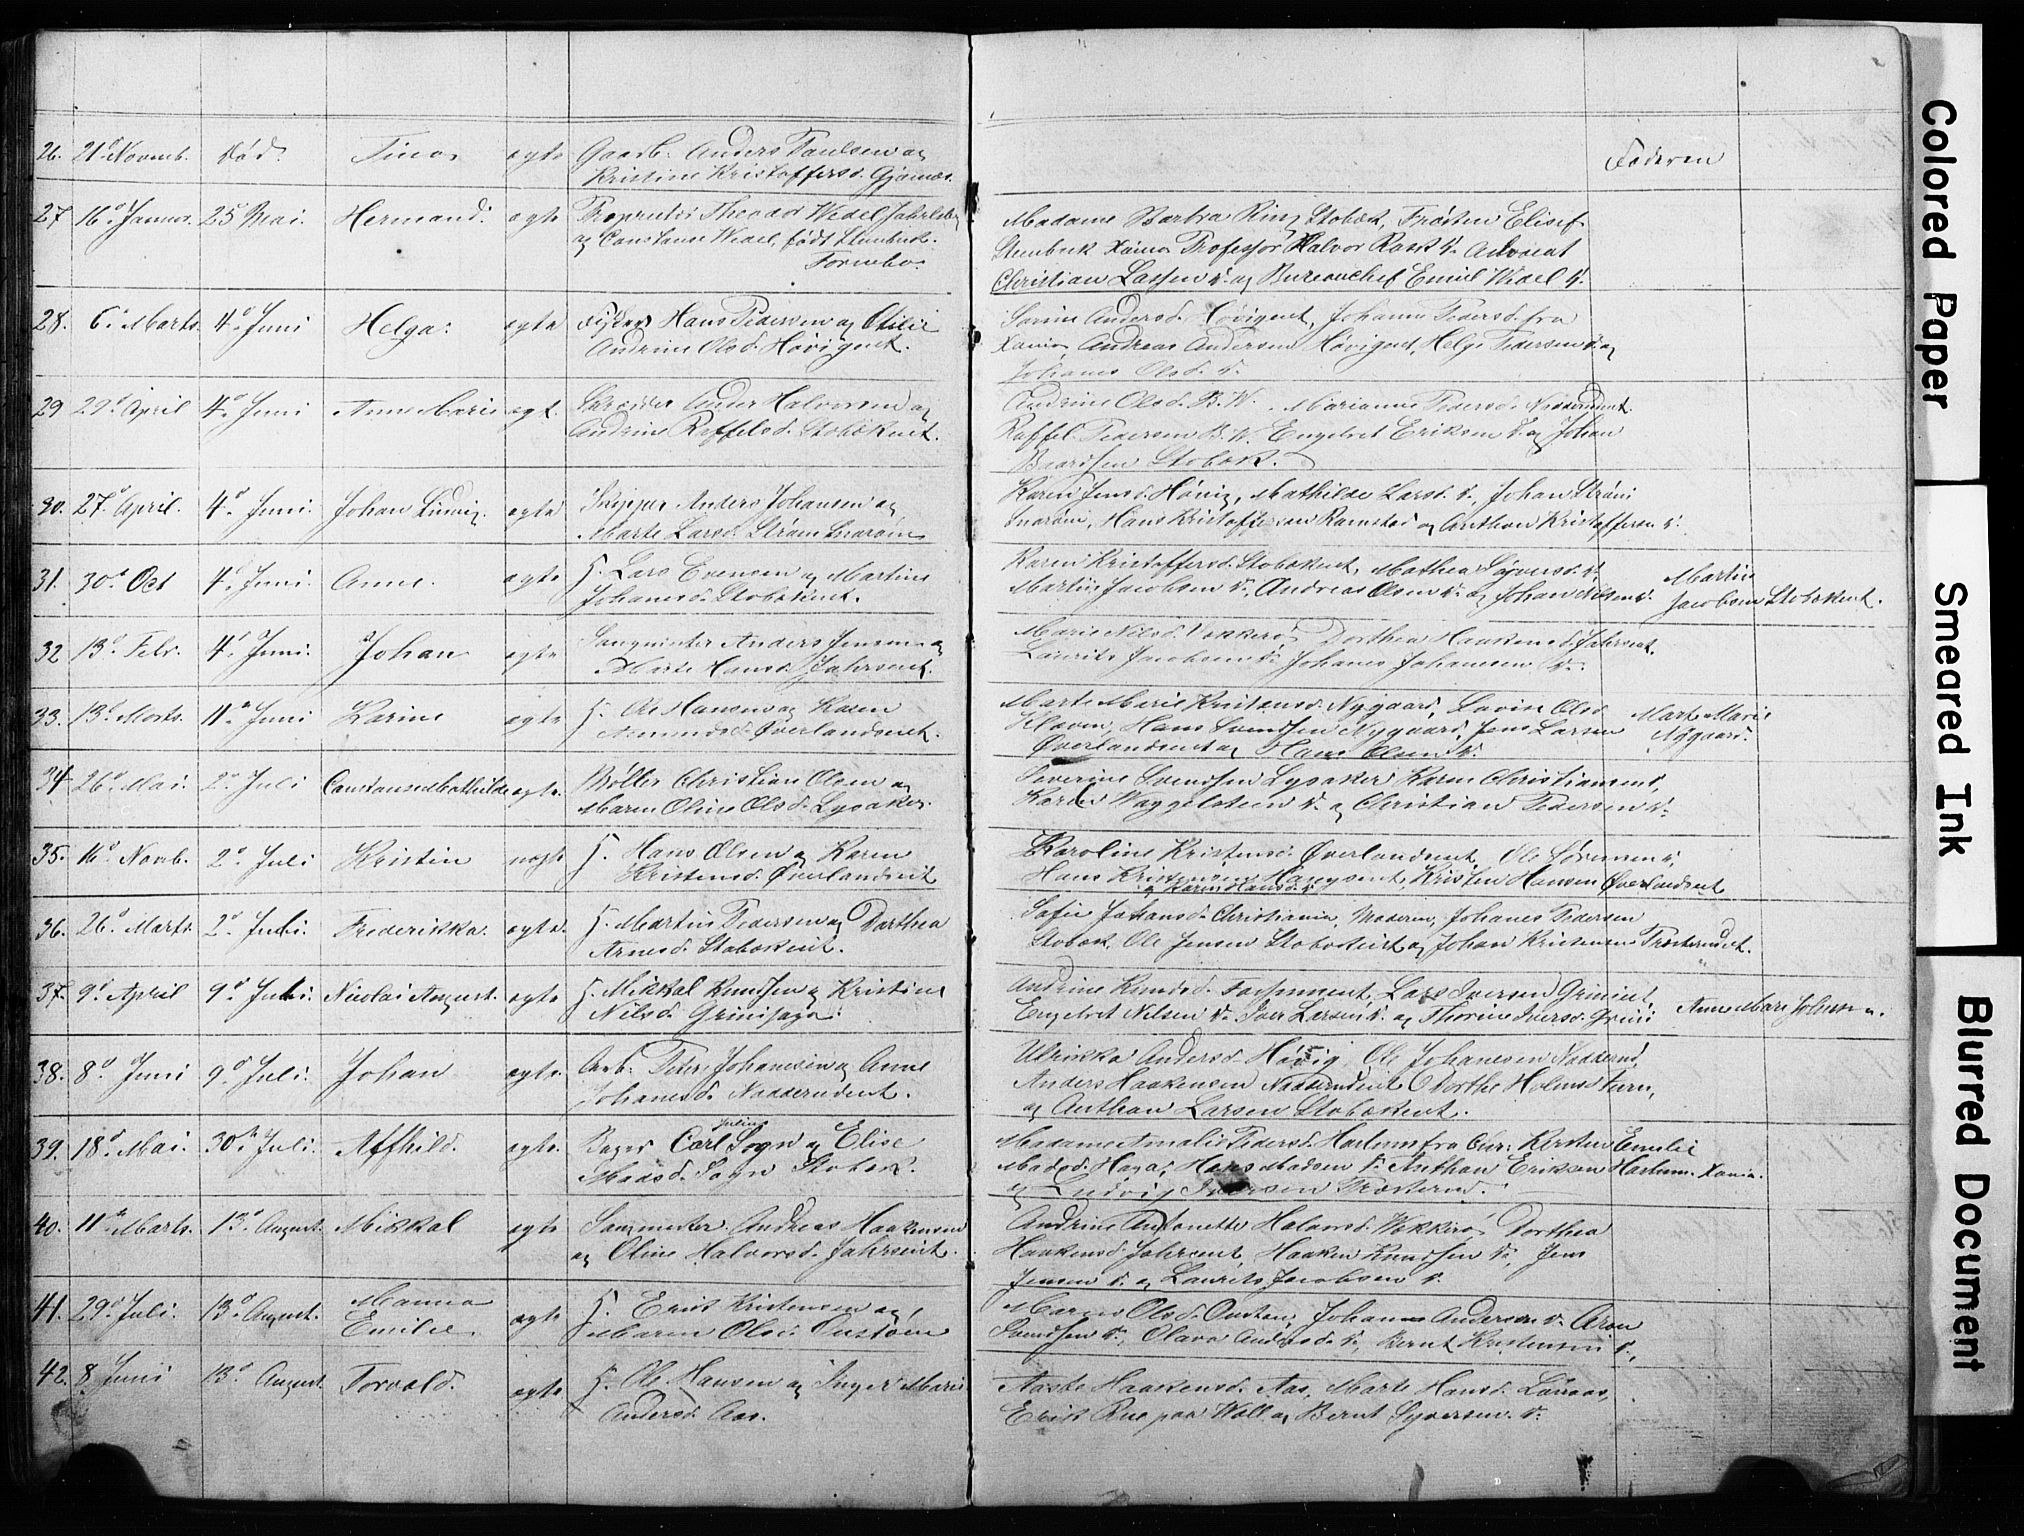 26. 21d Novemb. Død. Tina ægte Gaarb. Anders Paulsen og
Kristine Kristoffersd. Gjømæs.
Faderen
27 16d Januar. 25d Mai. Hermand: ægte Proprietær Theodor Wedel Jahrlsberg
og Constanse Wedel, født Stenbuk.
Fornebo.
Madame Barbra Ring Stobæk, Frøken Elisef
Stenbuk Xania Professor Halvor Rask d. Advocat
Christian Lassen d. og Bureauchef Emil Wedel d.
28. 6d Marts. 4d Juni Helga: ægte Fisker Hans Pedersen og Otilie
Andrine Olsd. Høvigeiet.
Andersd. Høvigeiet, Johanne Pedersd. fra
Xania, Andreas Andersen Høvigeiet, Helge Pedersen d. og
Johanes Olsd. d.
29 29d April 4d Juni Anne Marie ægt. Skrædder Anders Halvorsen og
Andrine Reffelsd. Stobækeiet.
Andrine Olsd. B. W. Marianne Pedersd. Nadderudeiet.
Raffel Pedersen B. W. Engebret Eriksen d. og Johan
Baardsen Stobæk.
30. 27d April. 4d Juni. Johan Ludvig. ægte Skipper Anders Johansen og
Marte Larsd. Strøm Snarøin
Karen Jensd. Høvig, Mathilde Larsd. d., Johan Strøm
Snarøin, Hans Kristoffersen Ramstad og Anthon Kristoffersen d.
31. 30d Oct 4d Juni. Anne. ægte H. Lars Evensen og Martine
Johanesd. Stobækeiet.
Karen Kristoffersd. Stobækeiet, Mathea Syversd. d.
Martin Jacobsen d., Andreas Olsen d. og Johan Nilsen d.
Martin
Jacobsen Stobækeiet.
32 13d Febr. 4d Juni. Johan ægte Saugmester Anders Jensen og
Marte Hansd. Jahrseiet.
Marie Nilsd. Vækkerø Dorthea Haakensd. Jahrseiet.
Laurits Jacobsen d. Johanes Johansen d.
33. 13d Marts. 11te Juni Larine ægte H. Ole Hansen og Karen
Amundsd. Øverlandseiet.
Marte Marie Kristensd. Nygaard, Lovise Olsd
Kloven, Hans Svendsen Nygaard, Jens Larsen
Øverlandseiet og Hans Olsen d.
Marte Marie
Nygaard.
34. 26d Mai. 2d Juli Constanse Mathilde ægte. Møller Christian Olsen og
Maren Oline Olsd. Lysaker.
Severine Svendsen Lysaker Karen Christiansens,
Karl Waggelsteen d. og Christian Pedersen d.
35. 16d Novb. 2d Juli Kristin uægte H. Hans Olsen og Karen
Kristensd. Øverlandseiet
Karoline Kristensd. Øverlandseiet, Ole Sørensen d.
Hans Kristensen Haugseiet, Kristen Hansen Øverlandseiet
og Karen Hansd. d.
36. 26d Marts. 2d Juli Frederikka. ægte. H. Martin Pedersen og Dorthea
Arnesd. Stobækeiet.
Sofie Johansd. Christiania, Moderen, Johanes Pedersen
Stobæk, Ole Jensen Stobækeiet og Johan Kristensen Presterudeiet.
37. 9d April 9d Juli. Nicolai August. ægte H. Mikkal Knudsen og Kristine
Nilsd. Grinisaga.
Andrine Knudsd. Fossumeiet, Lars Iversen Grinieiet,
Engebret Nilsen d. Iver Larsen d. og Thorine Iversd. Grini
Anne Mari Johnsen.
38. 8d Juni 9d Juli. Johan ægte. Arb. Peter Johansen og Anne
Johanesd. Nadderudeiet.
Ulrikka Andersd. Høvig, Ole Johanesen Nadderud,
Anders Haakensen Nadderudeiet Dorthe Holms Tærn,
og Anthon Larsen Stobækeiet.
39. 18d Mai. 30te Juli. Affhild. ægte. Bager Carl Julius Sogn og Elise
Madsd. Sogn Stobæk.
Madame Amalie Pedersd. Harlem fra Chr. Kirsten Emelie
Madsd. Haga, Hans Madsen d. Anthon Eriksen Harlem. Xania.
og Ludvig Iversen Presterud.
40. 11te Marts. 13d August. Mikkal ægte Saugmester Andreas Haakensen
og Oline Halvorsd. Jahrseiet.
Andrine Antonette Halvorsd. Wækkerø, Dorthea
Haakensd. Jahrseiet, Haaken Knudsen d., Jens
Jensen d. og Laurits Jacobsen d.
41. 29d Juli. 13d August. Manna
Emilie ægte H. Erik Kristensen og
Maren Olsd. Oustøen
Maren Olsd. Oustøen, Johan Andersen d. Aron
Svendsen d., Olava Andersd. d., Bernt Kristensen d.,
42. 8 Juni 13d August. Torvald. ægte H. Ole Hansen og Inger Marie
Andersd. Aas.
Aaste Haakensd. Aas, Marte Hansd. Løvaas,
Erik Rue paa Woll og Bernt Syversen d.
Colored Paper
Smeared Ink
Blurred Document